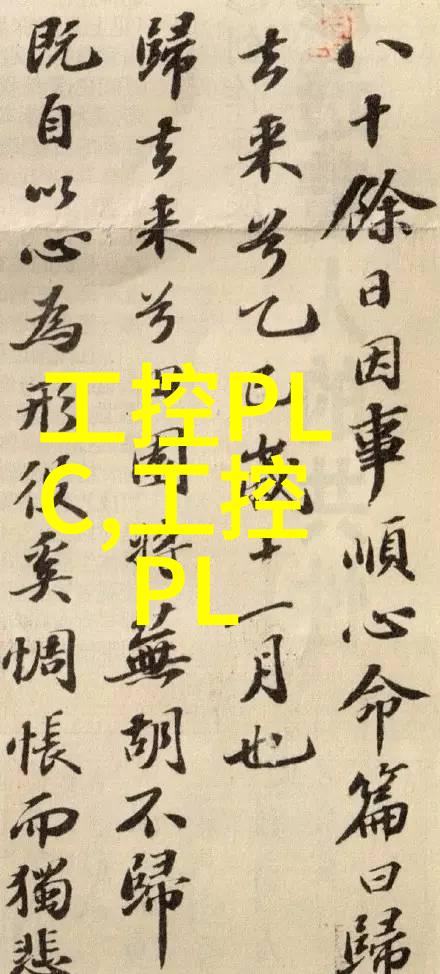 八十餘日因事順心命篇曰歸
去来兮乙巳歲十一月也
歸去来兮田園将蕪胡不歸
既自以心為形役奚惆悵而獨悲
工控PL
C,工控
PL